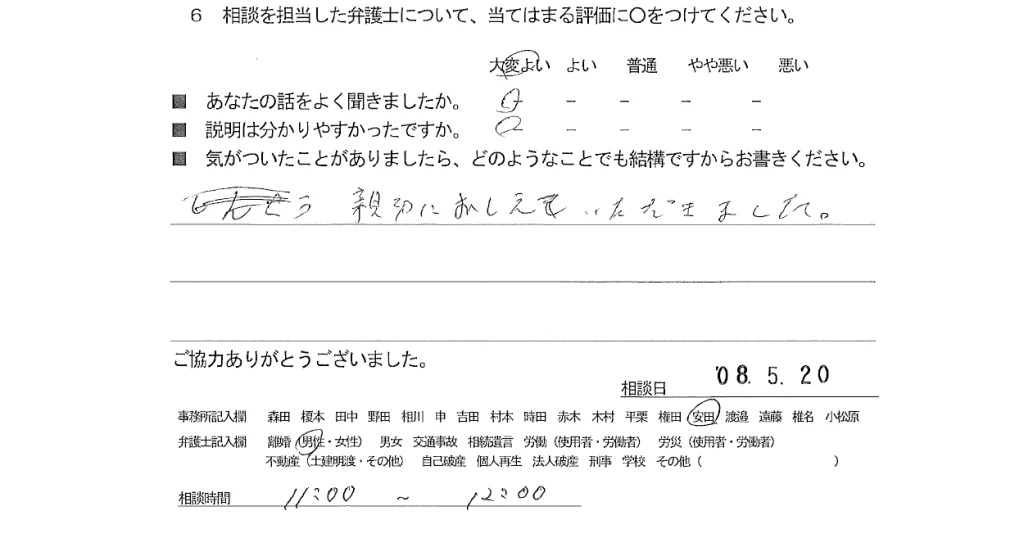 6 相談を担当した弁護士について、当てはまる評価に〇をつけてください。
大変よい よい 普通 やや悪い 悪い
■ あなたの話をよく聞きましたか。 － － － －
■ 説明は分かりやすかったですか。 － － － －
■ 気がついたことがありましたら、どのようなことでも結構ですからお書きください。
親切におしえていただきました。
ご協力ありがとうございました。
相談日 '08. 5. 20
事務所記入欄 森田 榎本 田中 野田 相川 申 吉田 村本 時田 赤木 木村 平栗 権田 安田 渡邉 遠藤 椎名 小松原
弁護士記入欄 離婚（男性・女性） 男女 交通事故 相続遺言 労働（使用者・労働者） 労災（使用者・労働者）
不動産（土建明渡・その他） 自己破産 個人再生 法人破産 刑事 学校 その他（ ）
相談時間 11:00 ～ 12:00